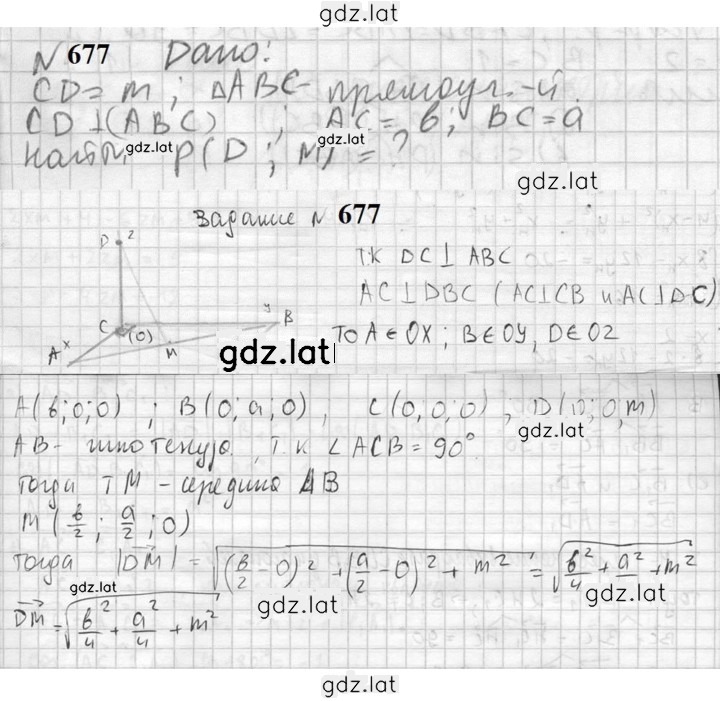 gdz.lat
N 677 Дано:
CD = m ; △ABC - прямоуг.-й.
CD ⊥ (ABC) ; AC = в ; BC = a
найти gdz.lat ρ(D ; M) = ?
gdz.lat
Задание N 677
D z
т.к DC ⊥ ABC
AC ⊥ DBC (AC⊥CB и AC⊥DC)
то A ∈ OX ; B ∈ OY, D ∈ OZ
C (O) y B
A x M
gdz.lat
A(в;0;0) ; B(0;a;0) , C(0;0;0) , D(0;0;m)
gdz.lat
AB - гипотенуза , т.к ∠ACB = 90°.
тогда т M - середина AB
M(в/2 ; a/2 ; 0)
тогда |DM| = √((в/2 - 0)² + (a/2 - 0)² + m²) = √(в²/4 + a²/4 + m²)
gdz.lat
gdz.lat
DM = √(в²/4 + a²/4 + m²)
gdz.lat
gdz.lat